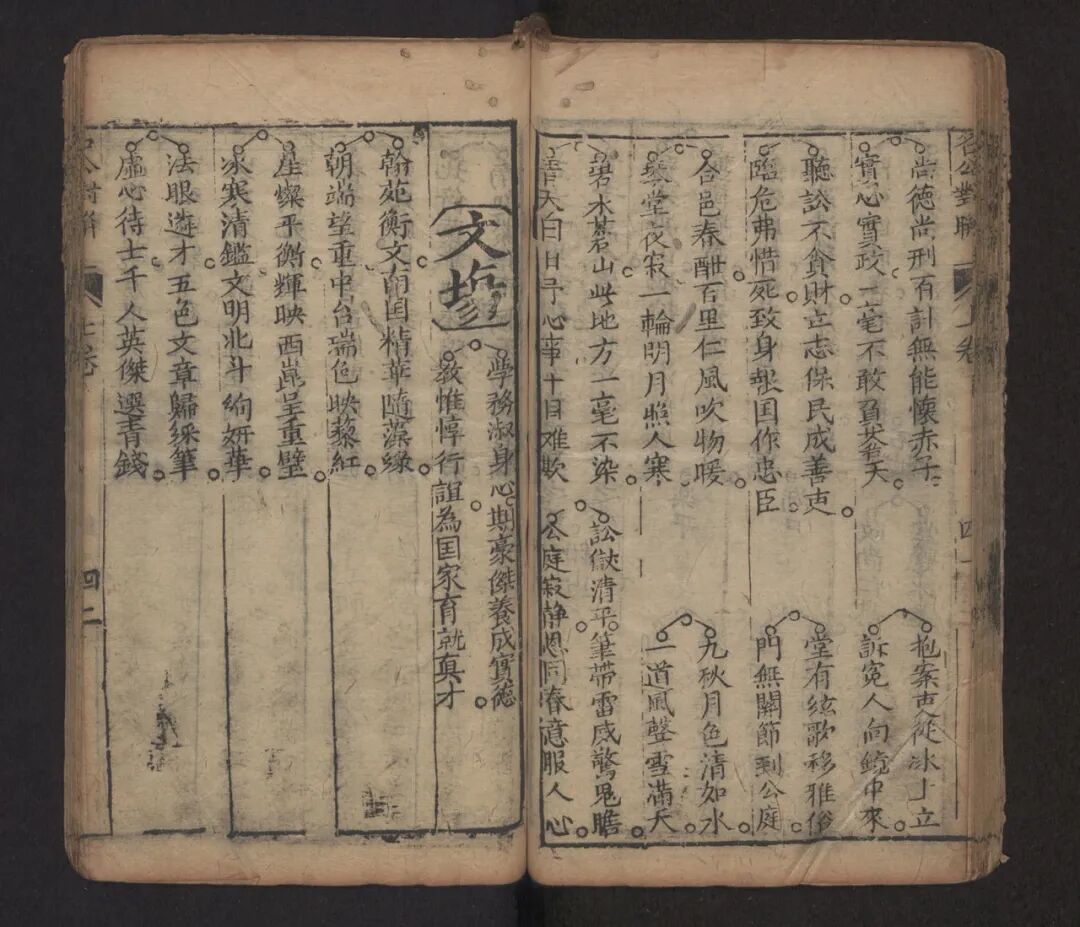 名公對聯
卷
四一
尚德尚刑有計無能懷赤子
抱案吏從冰上立
實心實政一毫不敢負蒼天
訴冤人向鏡中來
聽訟不貪財立志保民成善吏
堂有絃歌移雅俗
臨危弗惜死致身報国作忠臣
門無關節到公庭
合邑春酣百里仁風吹物暖
九秋月色清如水
琴堂夜寂一輪明月照人寒
一道風聲雪滿天
碧水蒼山此地方一毫不染
訟獄清平筆帶雷威驚鬼膽
青天白日予心事十目难欺
公庭寂静恩同春意服人心
文塲
學務淑身心期豪傑養成實德
教惟惇行誼為国家育就真才
翰苑衡文南国精華隨藻緣
朝端望重中台瑞色映藜紅
星燦平衡輝映西崑呈重壁
冰寒清鑑文明北斗絢妍華
法眼遴才五色文章歸綵筆
虛心待士千人英傑選青錢
名公對聯
七卷
四二